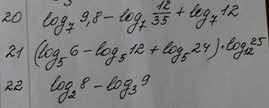 20 log₇ 9,8 - log₇ 12/35 + log₇ 12
21 (log₅ 6 - log₅ 12 + log₅ 24) · log₁₂ 25
22 log₂ 8 - log₃ 9